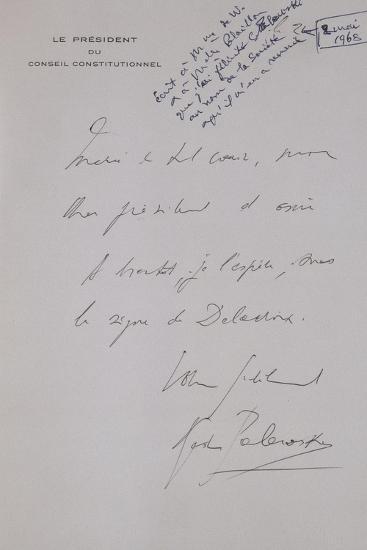 LE PRÉSIDENT
DU
CONSEIL CONSTITUTIONNEL
écrit à Mme de W.
et à Melle
que j'ai félicité G. Palewski
au nom de la Société
qu'il en a remercié
2 mai
1968
Merci de tout cœur, mon
cher président et ami
A bientôt, je l'espère, sous
le signe de Delacroix.
Votre fidèlement
Gaston Palewski